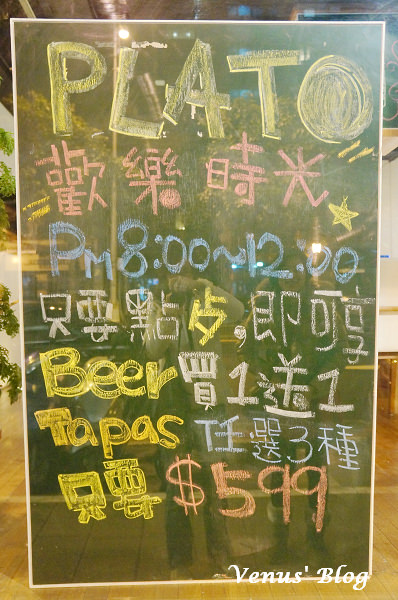 PLATO
歡樂時光
PM 8:00~12:00
只要點 夕,即可享
Beer 買1送1
Tapas 任選3種
只要 $599
Venus' Blog